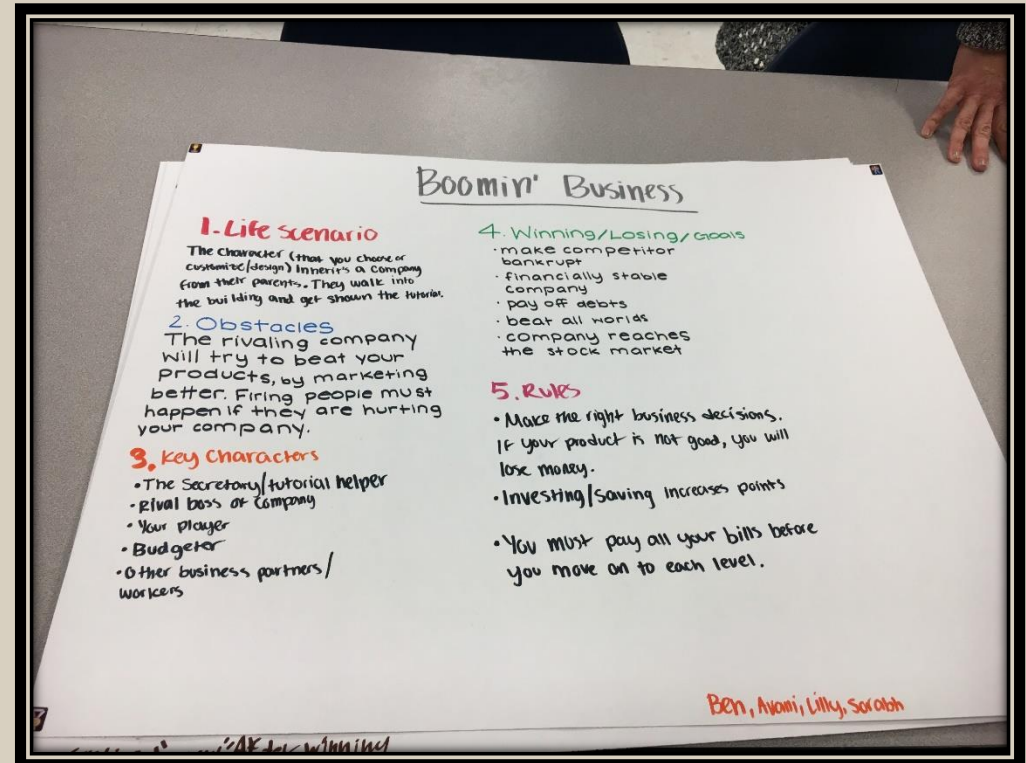 Boomin' Business
1. Life scenario
The character (that you choose or
customize/design) Inherits a company
from their parents. They walk into
the building and get shown the tutorial.
2. Obstacles
The rivaling company
will try to beat your
products, by marketing
better. Firing people must
happen if they are hurting
your company.
3. Key Characters
• The Secretary/tutorial helper
• Rival boss of Company
• Your player
• Budgetor
• Other business partners/
workers
4. Winning/Losing/Goals
• make competitor
bankrupt
• financially stable
company
• pay off debts
• beat all worlds
• company reaches
the stock market
5. Rules
• Make the right business decisions.
If your product is not good, you will
lose money.
• Investing/Saving Increases points
• You must pay all your bills before
you move on to each level.
Ben, Avani, Lilly, Sorabh
winning